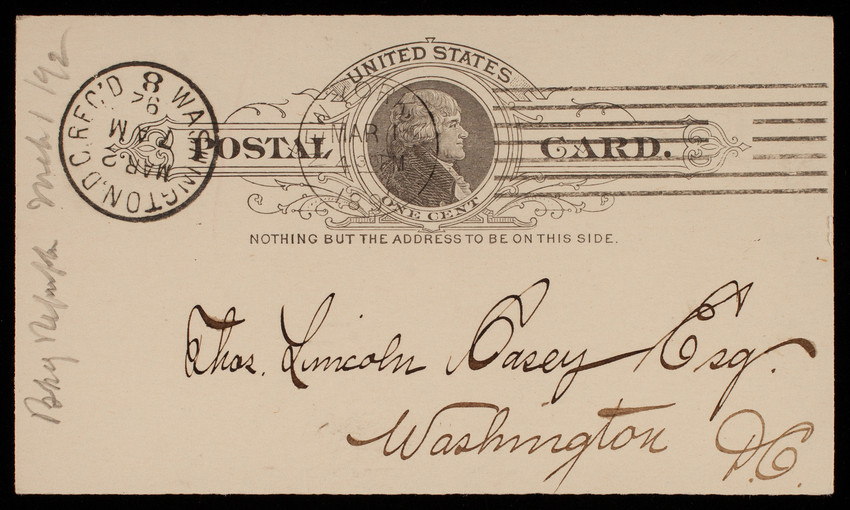 UNITED STATES
POSTAL CARD.
ONE CENT
NOTHING BUT THE ADDRESS TO BE ON THIS SIDE.
WASHINGTON, D.C. REC'D
MAR 2
7 AM
92
8
MAR 1
PM
Thos. Lincoln Casey Esq.
Washington D.C.
Mch 1/92